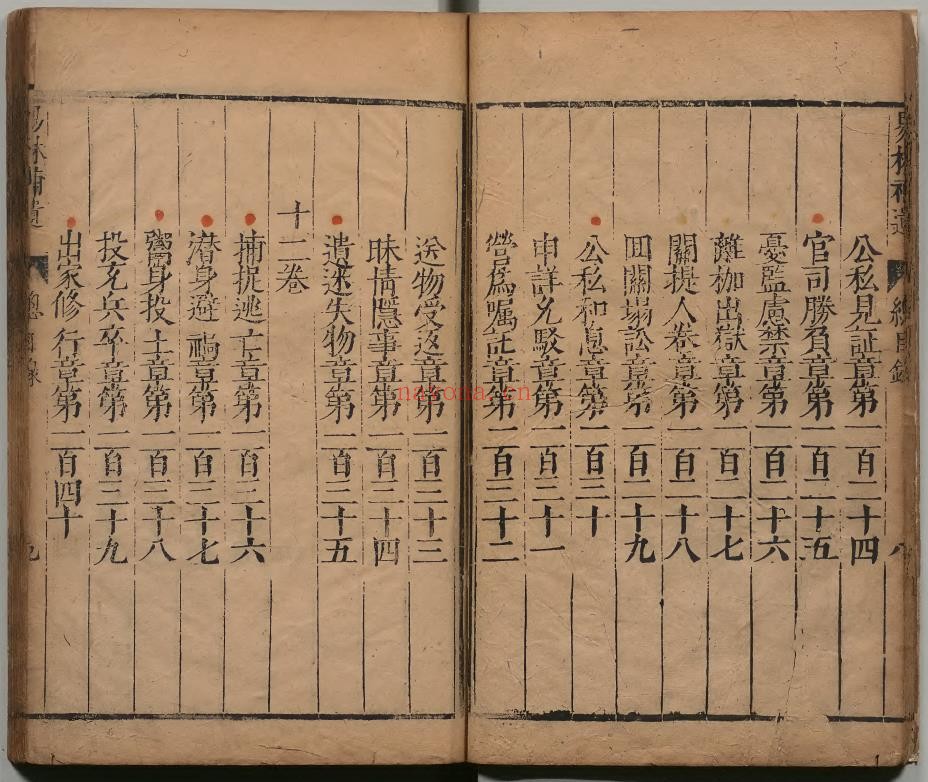 易林補遺
總目錄
八
公私見証章第一百二十四
官司勝負章第一百二十五
憂監慮禁章第一百二十六
離枷出獄章第一百二十七
關提人卷章第一百二十八
回關塌訟章第一百二十九
公私和息章第一百三十
申詳允駁章第一百三十一
營爲囑託章第一百三十二
送物受返章第一百三十三
昧情隱事章第一百三十四
遺迷失物章第一百三十五
十二卷
捕捉逃亡章第一百三十六
潛身避禍章第一百三十七
鬻身投主章第一百三十八
投充兵卒章第一百三十九
出家修行章第一百四十
易林補遺
總目錄
九
nayona.cn